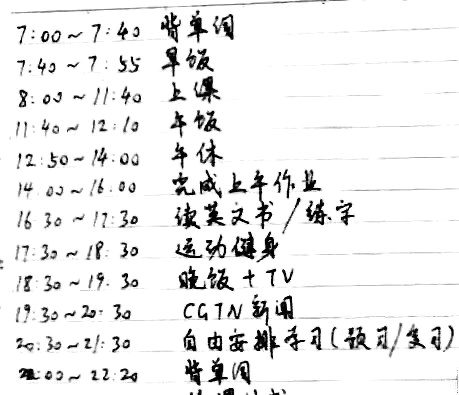 7:00~7:40 背单词
7:40~7:55 早饭
8:00~11:40 上课
11:40~12:10 午饭
12:50~14:00 午休
14:00~16:00 完成上午作业
16:30~17:30 读英文书/练字
17:30~18:30 运动健身
18:30~19:30 晚饭+TV
19:30~20:30 CGTN新闻
20:30~21:30 自由安排学习(预习/复习)
22:00~22:20 背单词